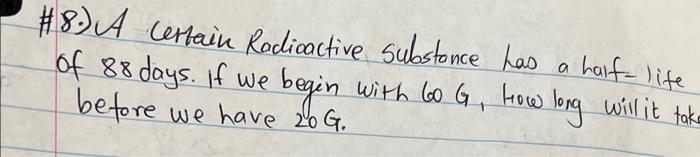 #8.) A certain Radioactive substance has a half-life
of 88 days. If we begin with 60 G, How long will it take
before we have 20 G.